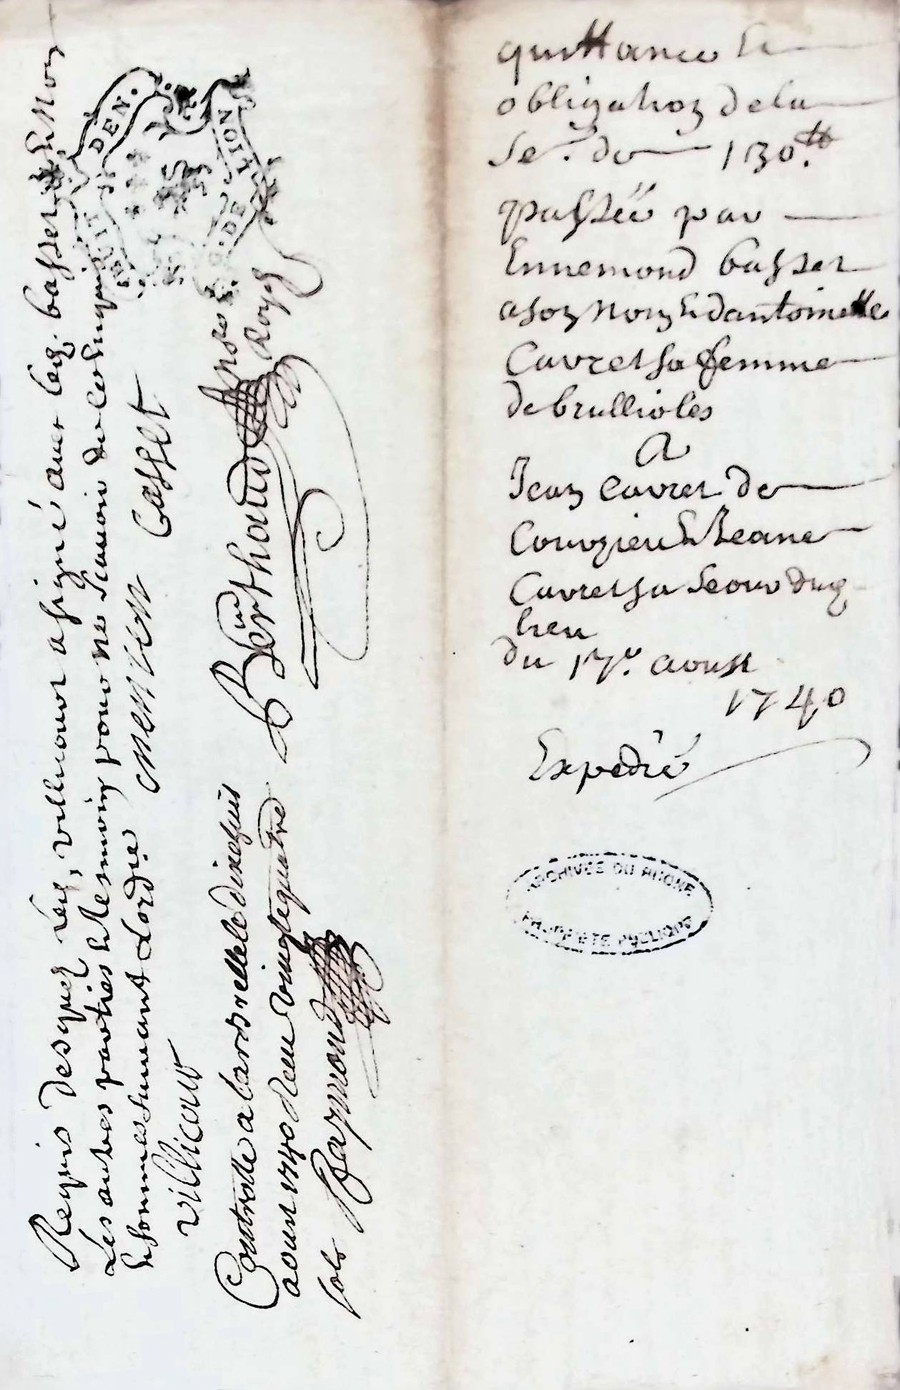 Requis de signer led. Villiour a signé avec led. basset &
Les autres parties & tesmoins pour ne scavoir de ce enquis
& sommes suivant Lordre
Villiour Menton Basset
Berthoud
Controllé a larbrelle le dixhuit
aoust 1740 Receu vingt quatre
sols Raymond
HUIT DEN.
G. DE LION
quittance &
obligation dela
Se.e de 130.tt
passéé par
Ennemond basset
a son nom & dantoinette
Cavret sa femme
de brullioles
A
Jean Cavret de
Courzieu & Jeane
Cavret sa seour dud.
lieu
du 17.e aoust
1740
Expedié
ARCHIVES DU RHONE
PROPRIÉTÉ PUBLIQUE